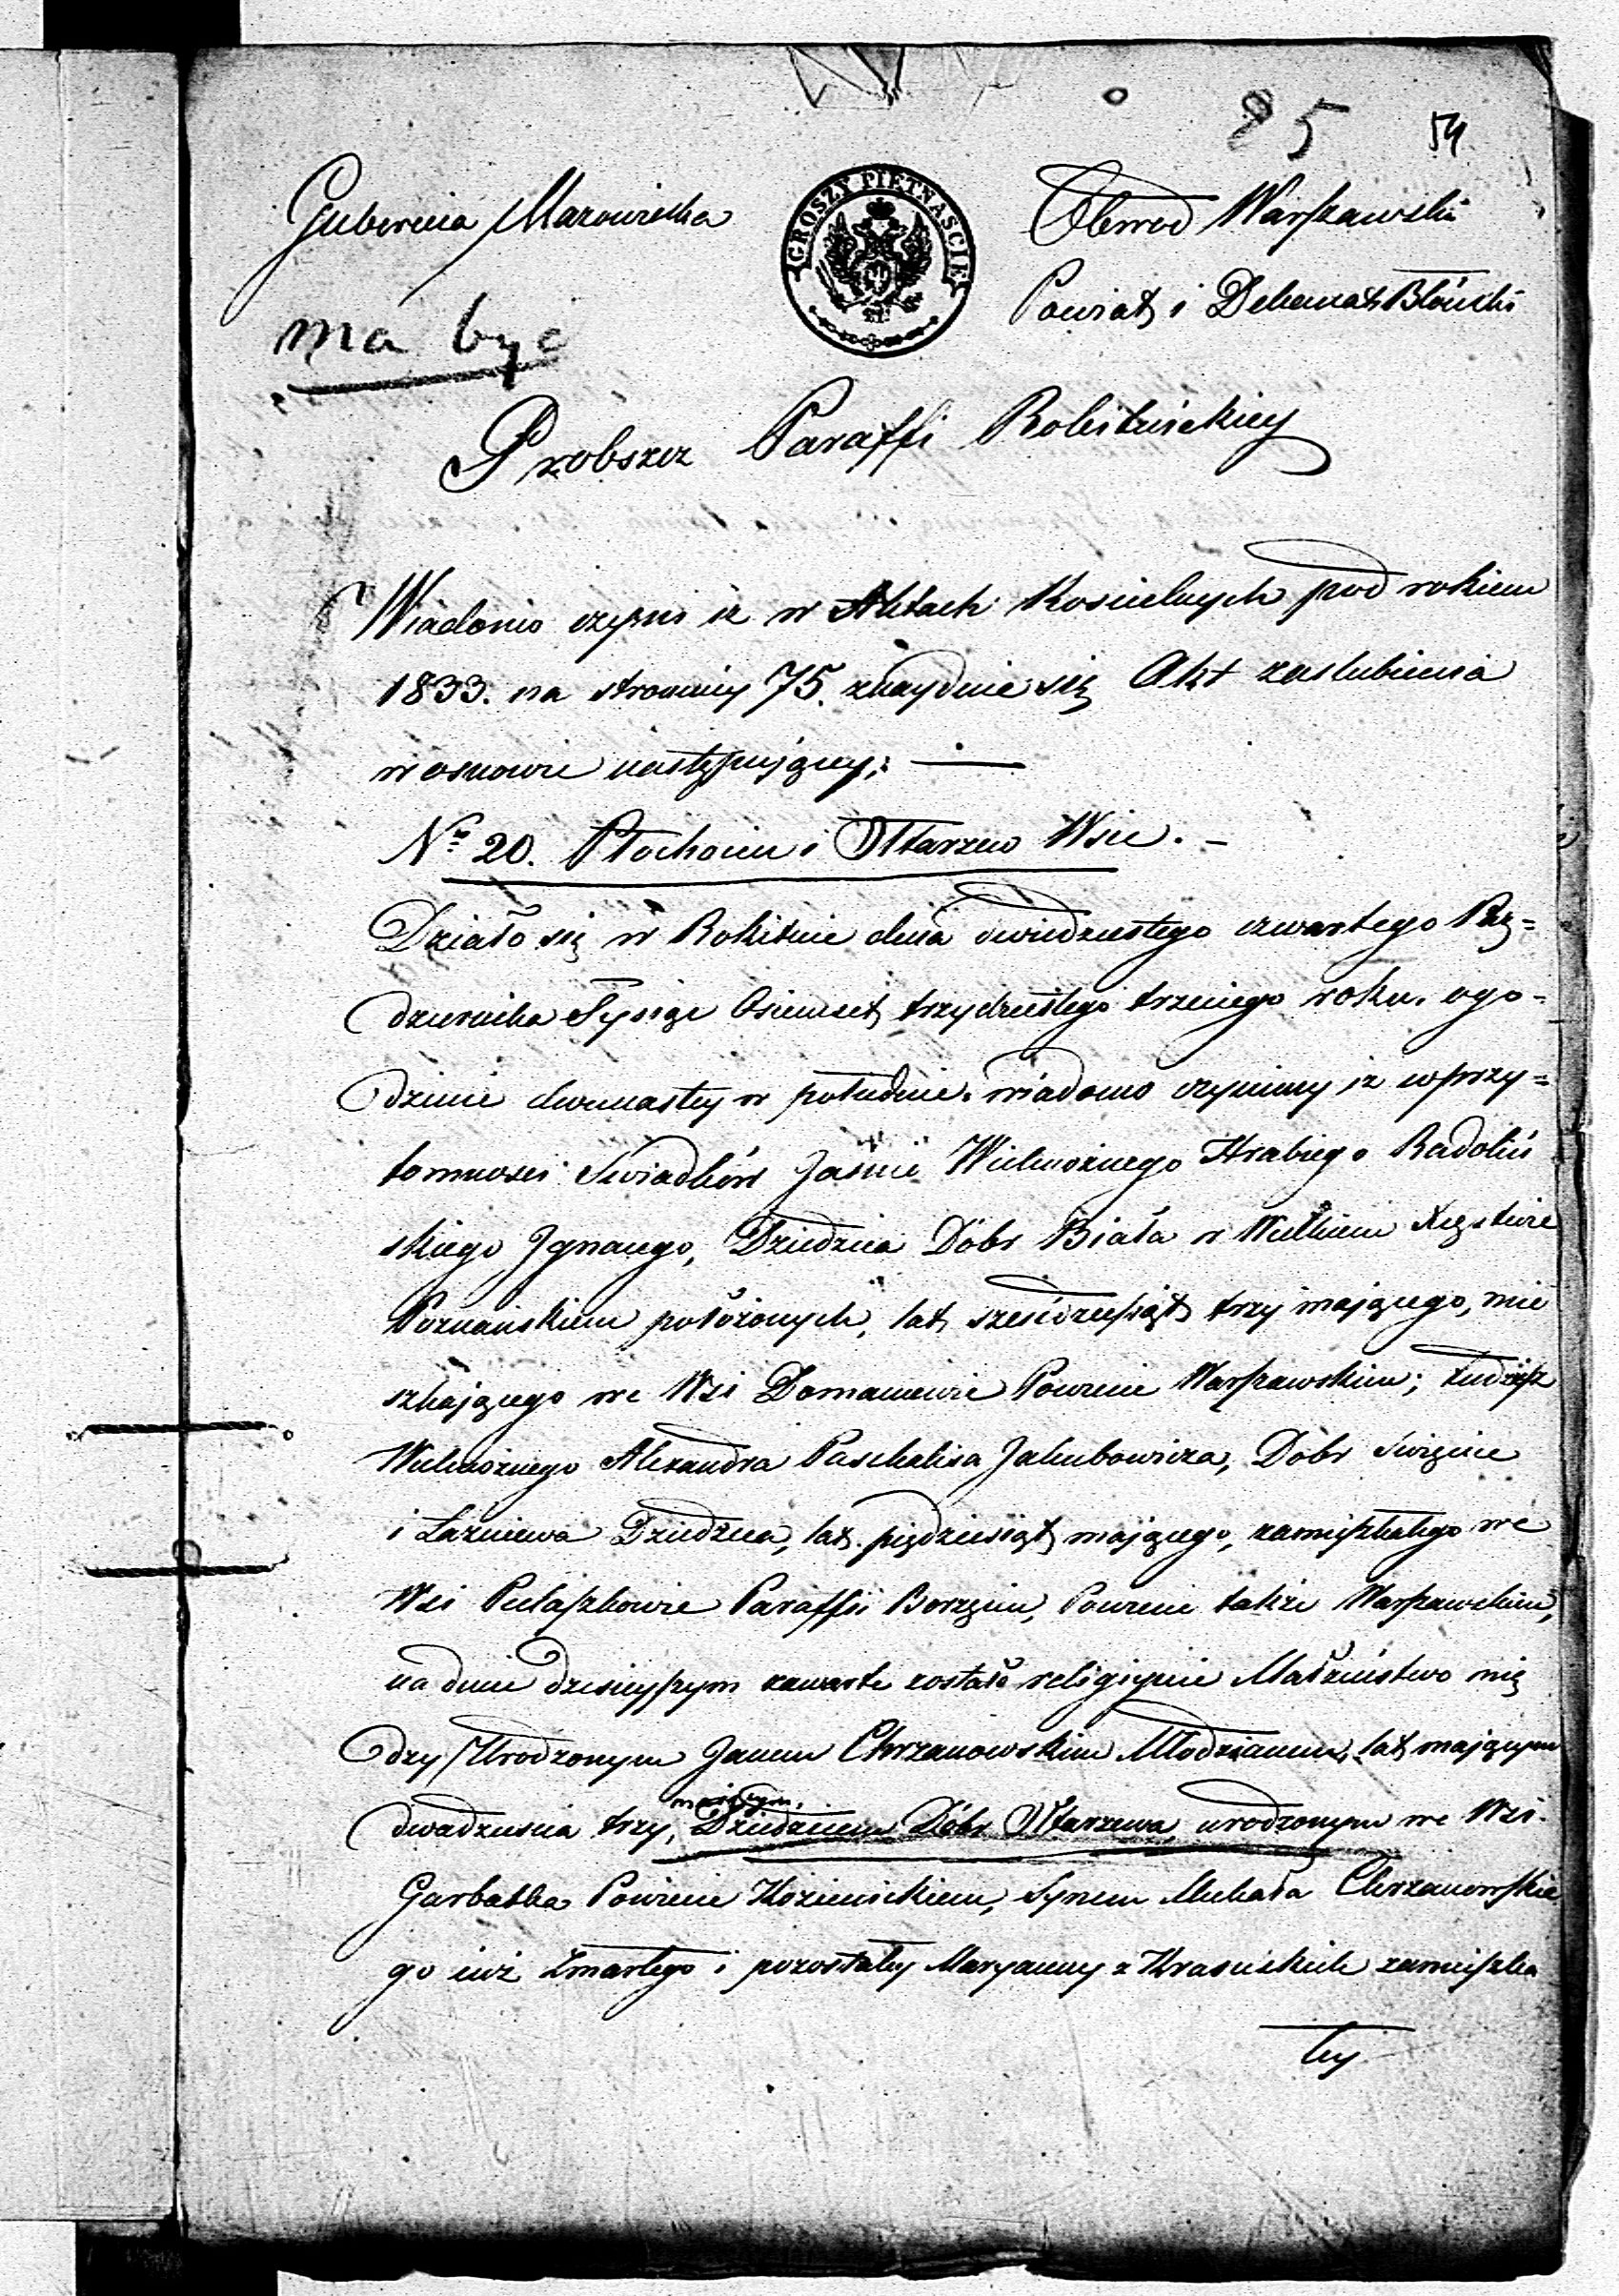 85 54
Gubernia Mazowiecka
GROSZY PIĘTNAŚCIE
Obwod Warszawski
Powiat i Dekanat Błoński
ma być
Probszcz Paraffi Rokitnickiey
Wiadomo czyni iz w Aktach Koscielnych pod rokiem
1833. na stronnicy 75. znayduie się Akt zaslubienia
w osnowie następuiącey: —
No 20. Płochocin i Ołtarzew Wsie. –
Działo się w Rokitnie dnia dwudziestego czwartego Paz=
dziernika Tysiąc Osiemset trzydziestego trzeciego roku. o go=
dzinie dwunastey w południe. wiadomo czyniemy iz w przy=
tomnosci Swiadków Jaśnie Wielmoznego Hrabiego Radoliń
skiego Ignacego, Dziedzica Dóbr Biała w Wielkiem Xięstwie
Poznańskiem położonych, lat szesćdziesiąt trzy maiącego, mie
szkaiącego we Wsi Domaniewie Powiecie Warszawskim; tudziesz
Wielmoznego Alexandra Paschalisa Jakubowicza, Dóbr Swięcice
i Łazniewa Dziedzica, lat piędziesiąt maiącego, zamieszkałego we
Wsi Pulaszkowie Paraffii Borzęcin, Powiecie także Warszawskim,
na dniu dzisieyszym zawarte zostało religiynie Małzeństwo mię
dzy Urodzonym Janem Chrzanowskim Młodzianem, lat maiącym
maiącym.
dwadziescia trzy, Dziedzicem Dóbr Ołtarzewa, urodzonym we Wsi
Garbatka Powiecie Kozienickiem, Synem Michała Chrzanowskie
go iuż Zmarłego i pozostałey Maryanny z Krasuskich zamieszka
łey